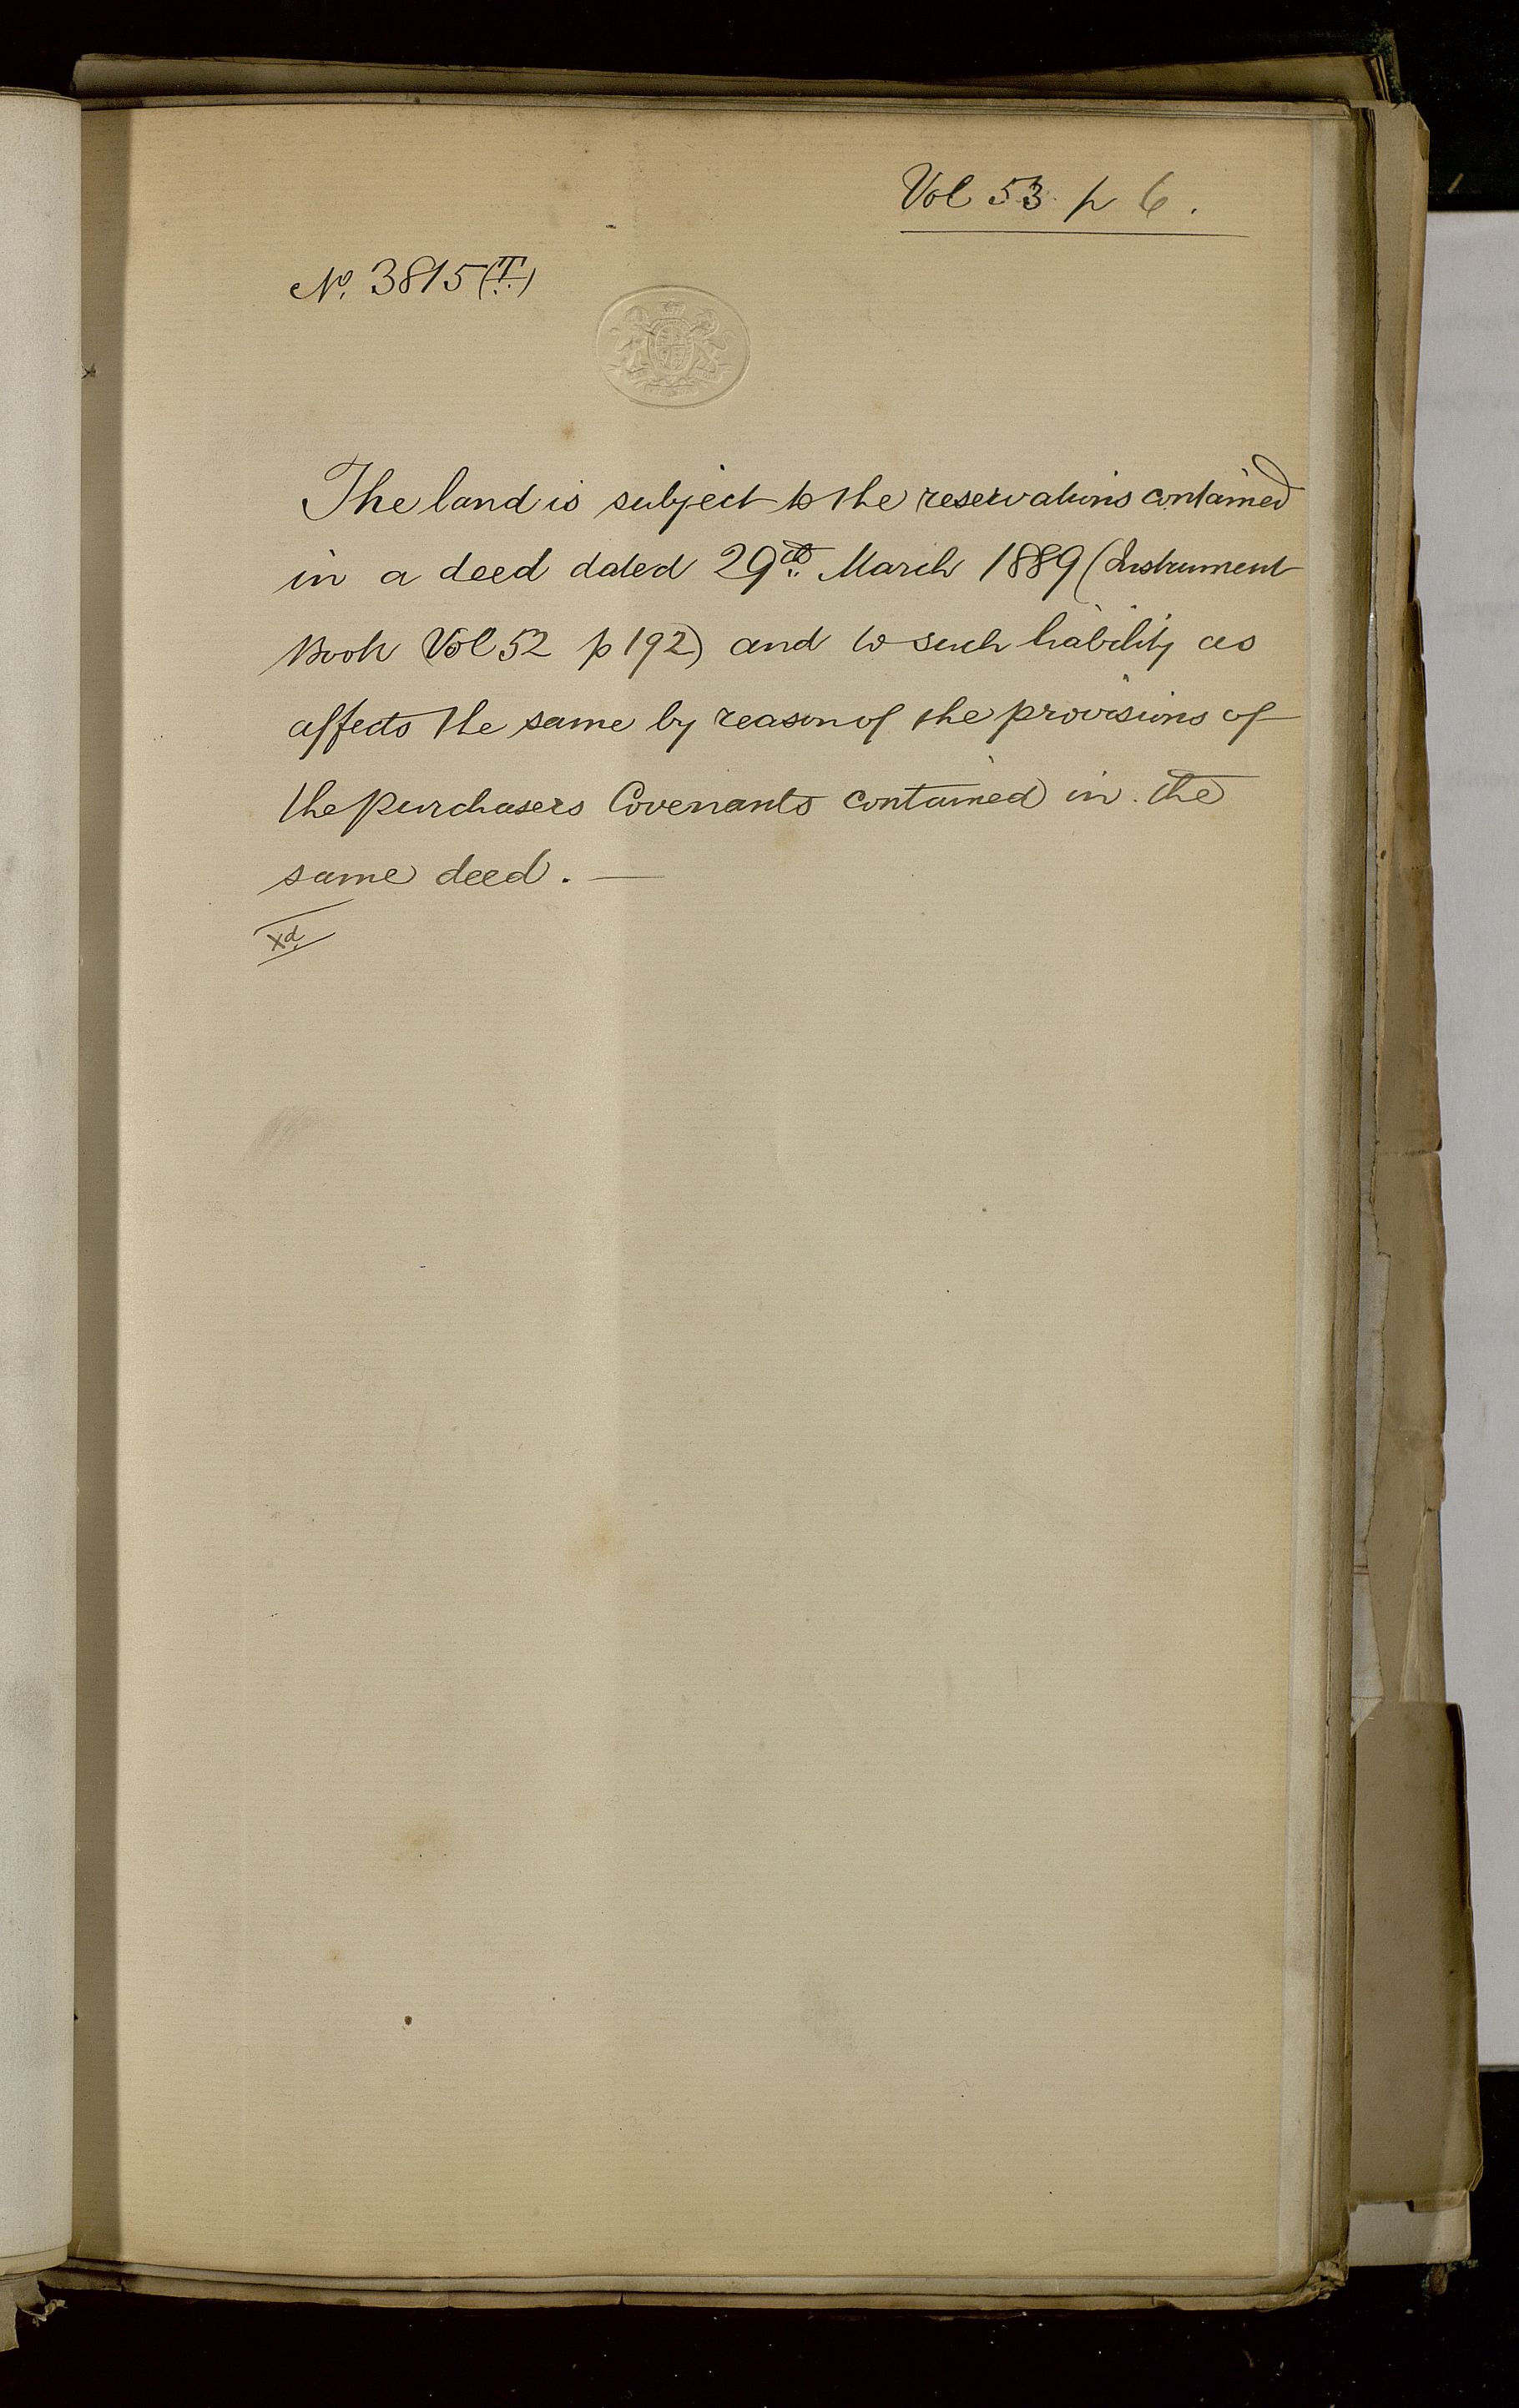 Vol 53 p 6.
No. 3815 (T.)
The land is subject to the reservations contained
in a deed dated 29th March 1889 (Instrument
Book Vol 52 p 192) and to such liability as
affects the same by reason of the provisions of
the purchasers Covenants contained in the
same deed. —
Xd